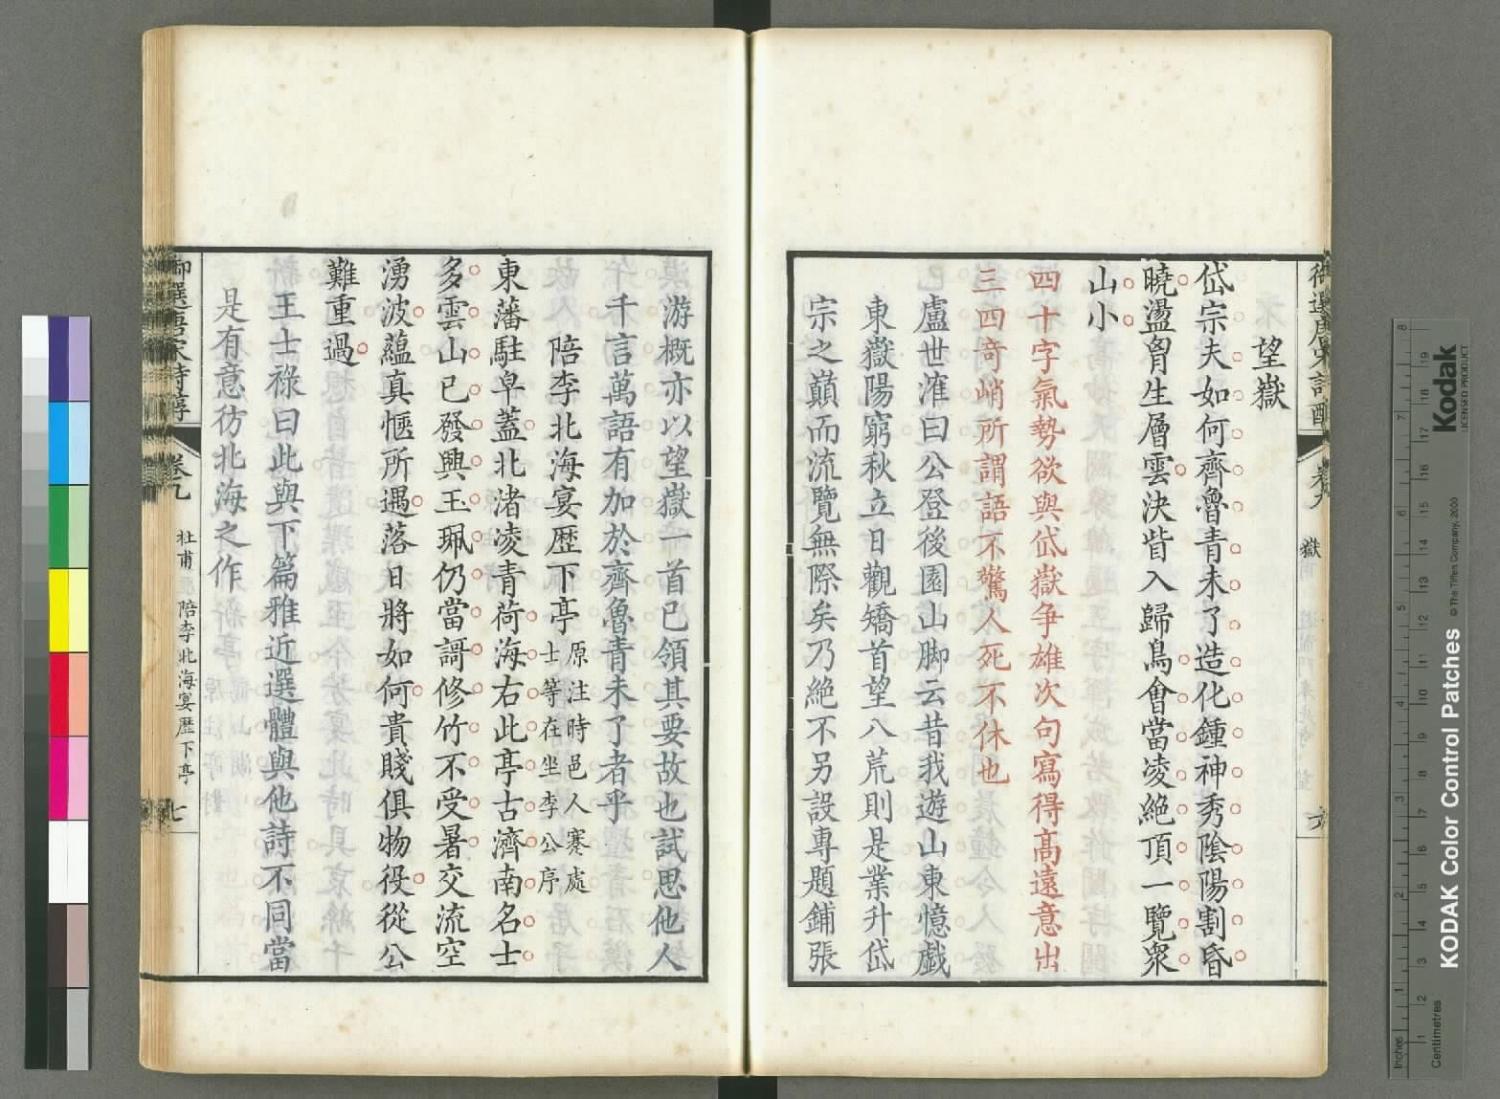 望嶽
岱宗夫如何齊魯青未了造化鍾神秀陰陽割昏
曉盪胷生層雲決眥入歸鳥會當凌絕頂一覽衆
山小
四十字氣勢欲與岱嶽争雄次句寫得高遠意出
三四奇峭所謂語不驚人死不休也
盧世㴶曰公登後園山脚云昔我遊山東憶戲
東嶽陽窮秋立日觀矯首望八荒則是業升岱
宗之巔而流覽無際矣乃絶不另設專題鋪張
游概亦以望嶽一首已領其要故也試思他人
千言萬語有加於齊魯青未了者乎
陪李北海宴歷下亭
原注時邑人蹇處
士等在坐李公序
東藩駐皁蓋北渚凌青荷海右此亭古濟南名士
多雲山已發興玉珮仍當謌修竹不受暑交流空
湧波蘊真愜所遇落日將如何貴賤俱物役從公
難重過
王士祿曰此與下篇雅近選體與他詩不同當
是有意彷北海之作
御選唐宋詩醇
卷九
杜甫
陪李北海宴歷下亭
七
Kodak
LICENSED PRODUCT
KODAK Color Control Patches
© The Tiffen Company, 2000
Inches
Centimetres